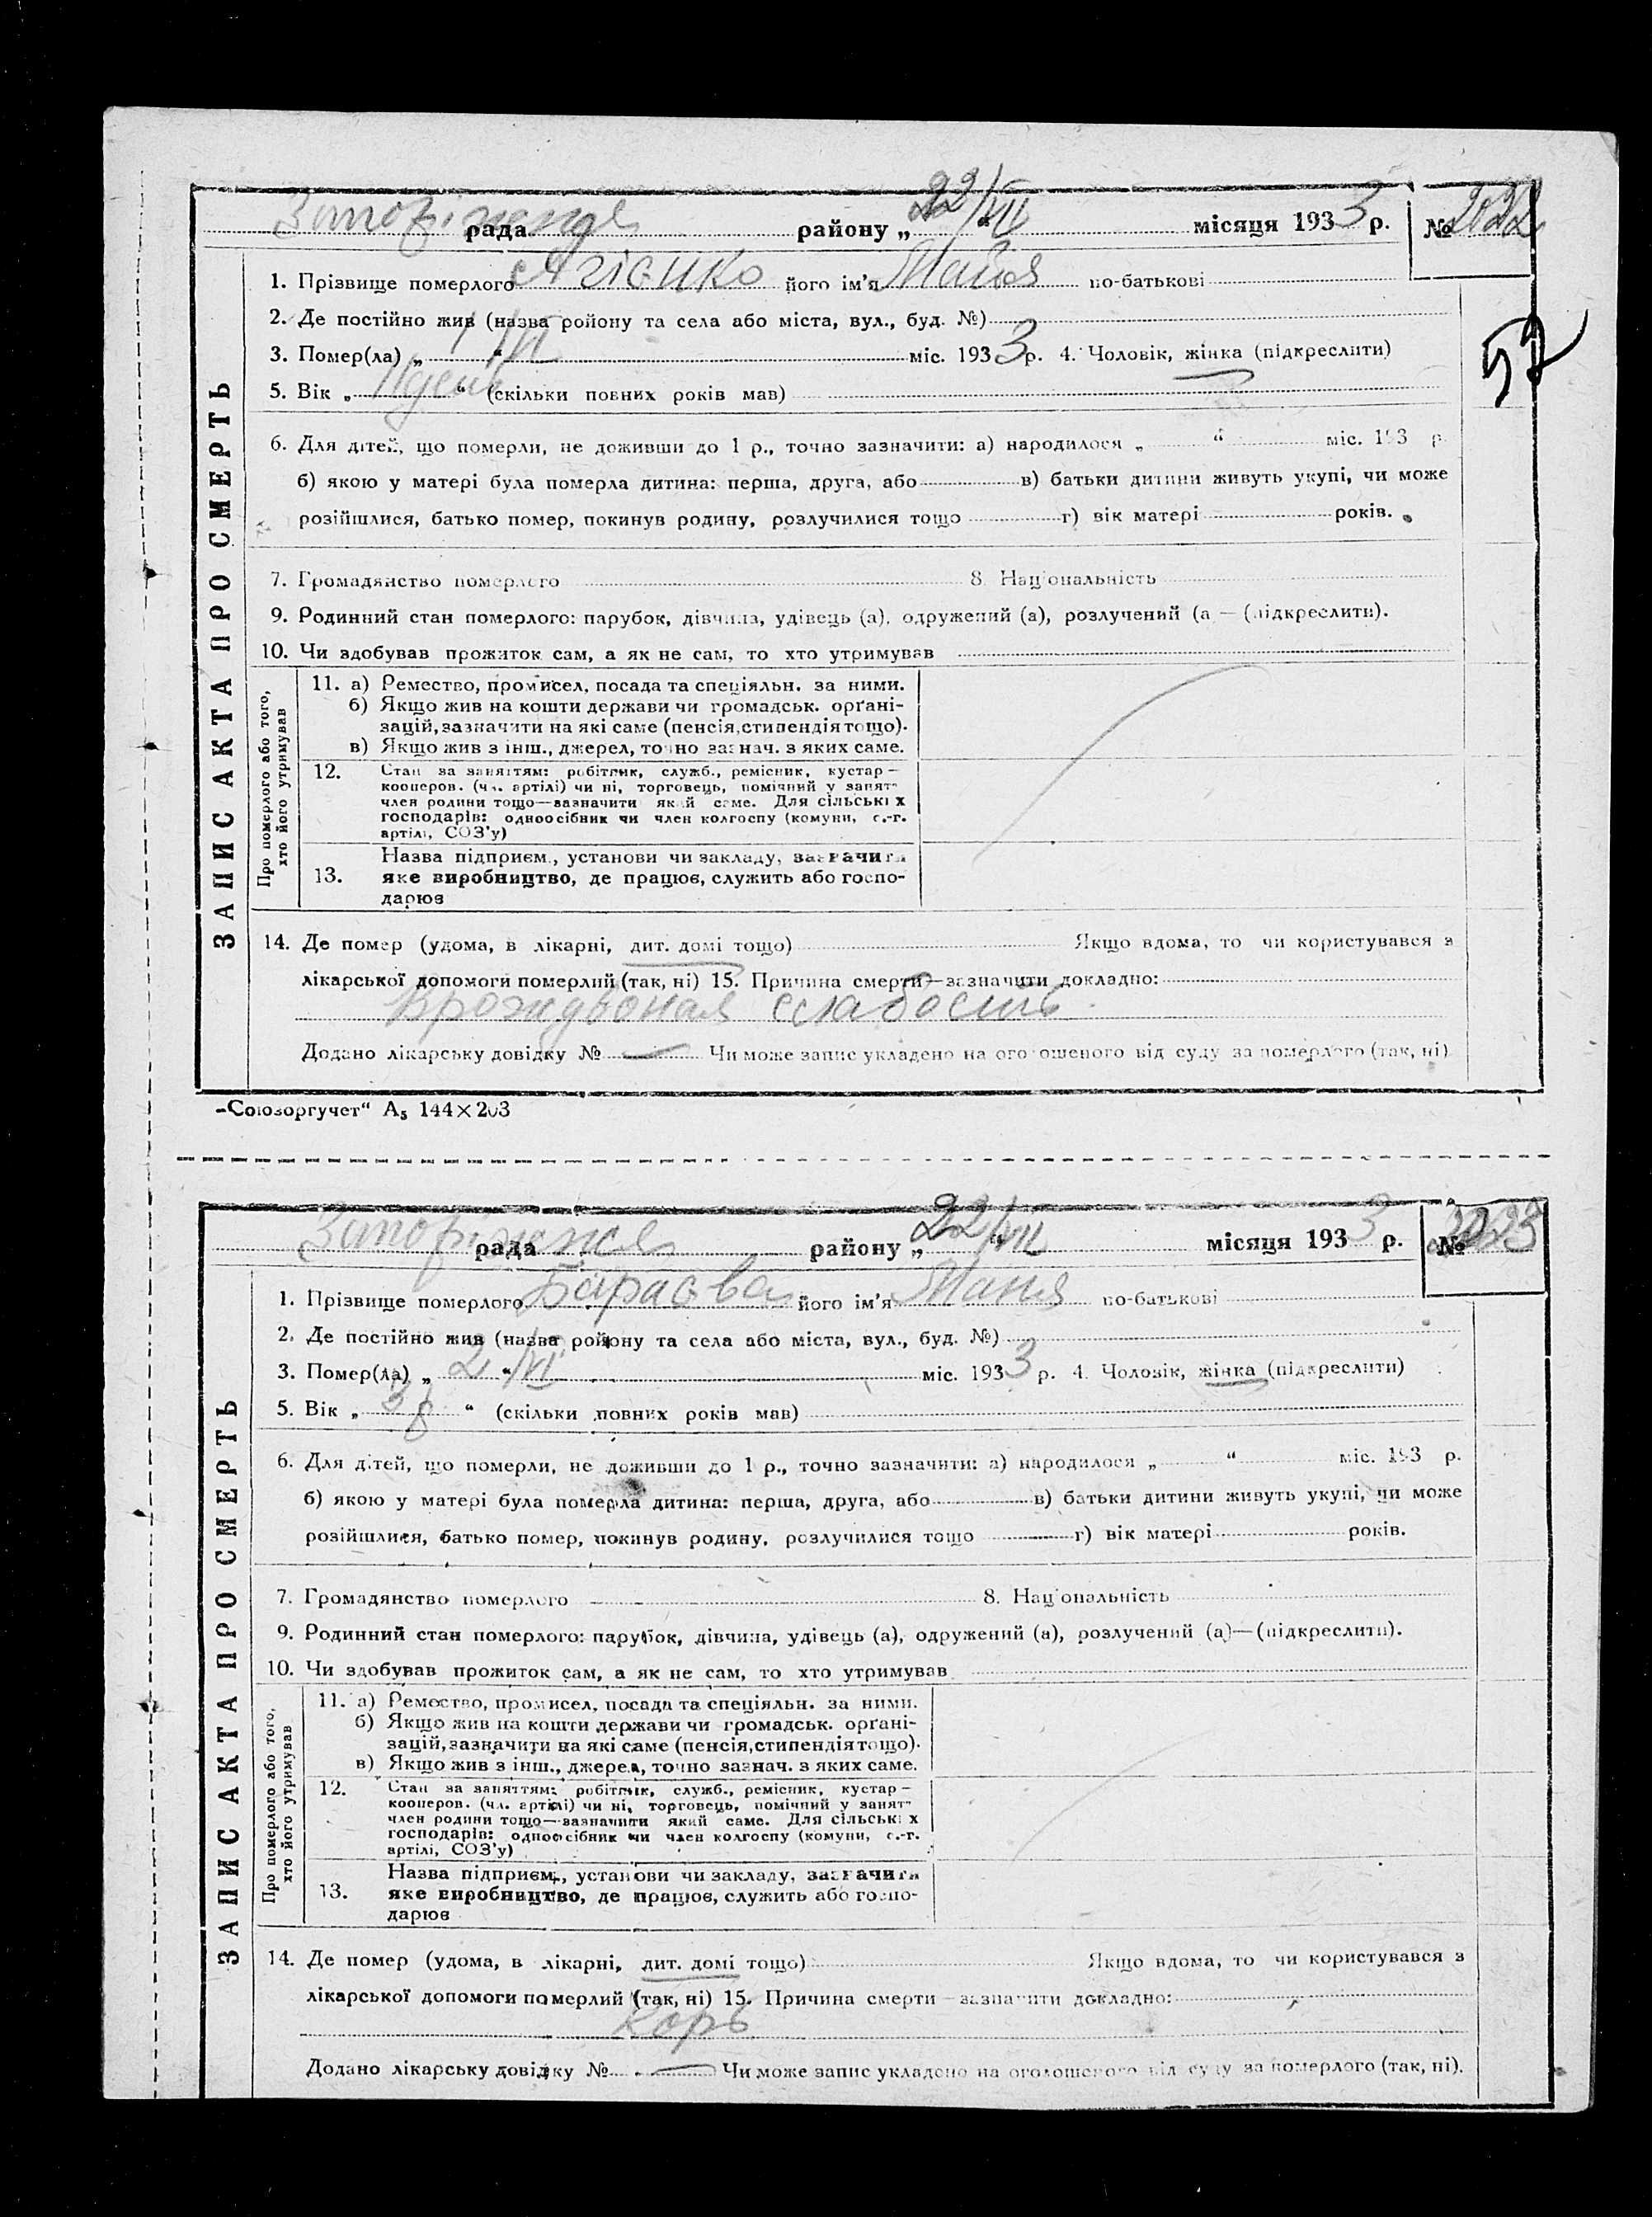 Запорізька рада району „22/VII“ місяця 1933 р. № 2022
1. Прізвище померлого його ім'я Майя по-батькові
2. Де постійно жив (назва ройону та села або міста, вул., буд. №)
3. Помер(ла) „ “ міс. 1933 р. 4. Чоловік, жінка (підкреслити)
5. Вік „ “ (скільки повних років мав)
57
6. Для дітей, що померли, не доживши до 1 р., точно зазначити: а) народилося „ “ міс. 193 р.
б) якою у матері була померла дитина: перша, друга, або в) батьки дитини живуть укупі, чи може
розійшлися, батько помер, покинув родину, розлучилися тощо г) вік матері років.
7. Громадянство померлого 8. Національність
9. Родинний стан померлого: парубок, дівчина, удівець (а), одружений (а), розлучений (а — (підкреслити).
10. Чи здобував прожиток сам, а як не сам, то хто утримував
ЗАПИС АКТА ПРО СМЕРТЬ
Про померлого або того,
хто його утримував
11. а) Ремество, промисел, посада та спеціяльн. за ними.
б) Якщо жив на кошти держави чи громадськ. орґані-
зацій, зазначити на які саме (пенсія, стипендія тощо).
в) Якщо жив з інш., джерел, точно зазнач. з яких саме.
12. Стан за заняттям: робітник, служб., ремісник, кустар—
кооперов. (чл. артілі) чи ні, торговець, помічний у занят-
член родини тощо—зазначити який саме. Для сільських
господарів: одноосібник чи член колгоспу (комуни, с.-г.
артілі, СОЗ'у)
13. Назва підприєм., установи чи закладу, зазначити
яке виробництво, де працює, служить або госпо-
дарює
14. Де помер (удома, в лікарні, дит. домі тощо) Якщо вдома, то чи користувався з
лікарської допомоги померлий (так, ні) 15. Причина смерти—зазначити докладно:
слабость
Додано лікарську довідку № — Чи може запис укладено на оголошеного від суду за померлого (так, ні).
„Союзоргучет“ А5 144×203
Запорізька рада району „22/VII“ місяця 1933 р. № 2023
1. Прізвище померлого його ім'я Маня по-батькові
2. Де постійно жив (назва ройону та села або міста, вул., буд. №)
3. Помер(ла) „ 2 “ міс. 1933 р. 4. Чоловік, жінка (підкреслити)
5. Вік „ “ (скільки повних років мав)
6. Для дітей, що померли, не доживши до 1 р., точно зазначити: а) народилося „ “ міс. 193 р.
б) якою у матері була померла дитина: перша, друга, або в) батьки дитини живуть укупі, чи може
розійшлися, батько помер, покинув родину, розлучилися тощо г) вік матері років.
7. Громадянство померлого 8. Національність
9. Родинний стан померлого: парубок, дівчина, удівець (а), одружений (а), розлучений (а)—(підкреслити).
10. Чи здобував прожиток сам, а як не сам, то хто утримував
ЗАПИС АКТА ПРО СМЕРТЬ
Про померлого або того,
хто його утримував
11. а) Ремество, промисел, посада та спеціяльн. за ними.
б) Якщо жив на кошти держави чи громадськ. орґані-
зацій, зазначити на які саме (пенсія, стипендія тощо).
в) Якщо жив з інш., джерел, точно зазнач. з яких саме.
12. Стан за заняттям: робітник, служб., ремісник, кустар—
кооперов. (чл. артілі) чи ні, торговець, помічний у занят-
член родини тощо—зазначити який саме. Для сільських
господарів: одноосібник чи член колгоспу (комуни, с.-г.
артілі, СОЗ'у)
13. Назва підприєм., установи чи закладу, зазначити
яке виробництво, де працює, служить або госпо-
дарює
14. Де помер (удома, в лікарні, дит. домі тощо) Якщо вдома, то чи користувався з
лікарської допомоги померлий (так, ні) 15. Причина смерти—зазначити докладно:
Корь
Додано лікарську довідку № — Чи може запис укладено на оголошеного від суду за померлого (так, ні).